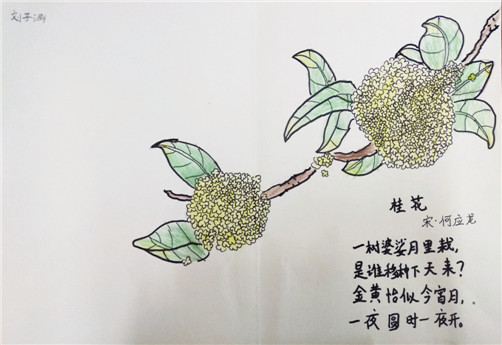 刘子渊
桂花
宋·何应龙
一树婆娑月里栽,
是谁移种下天来?
金黄恰似今宵月,
一夜圆时一夜开。